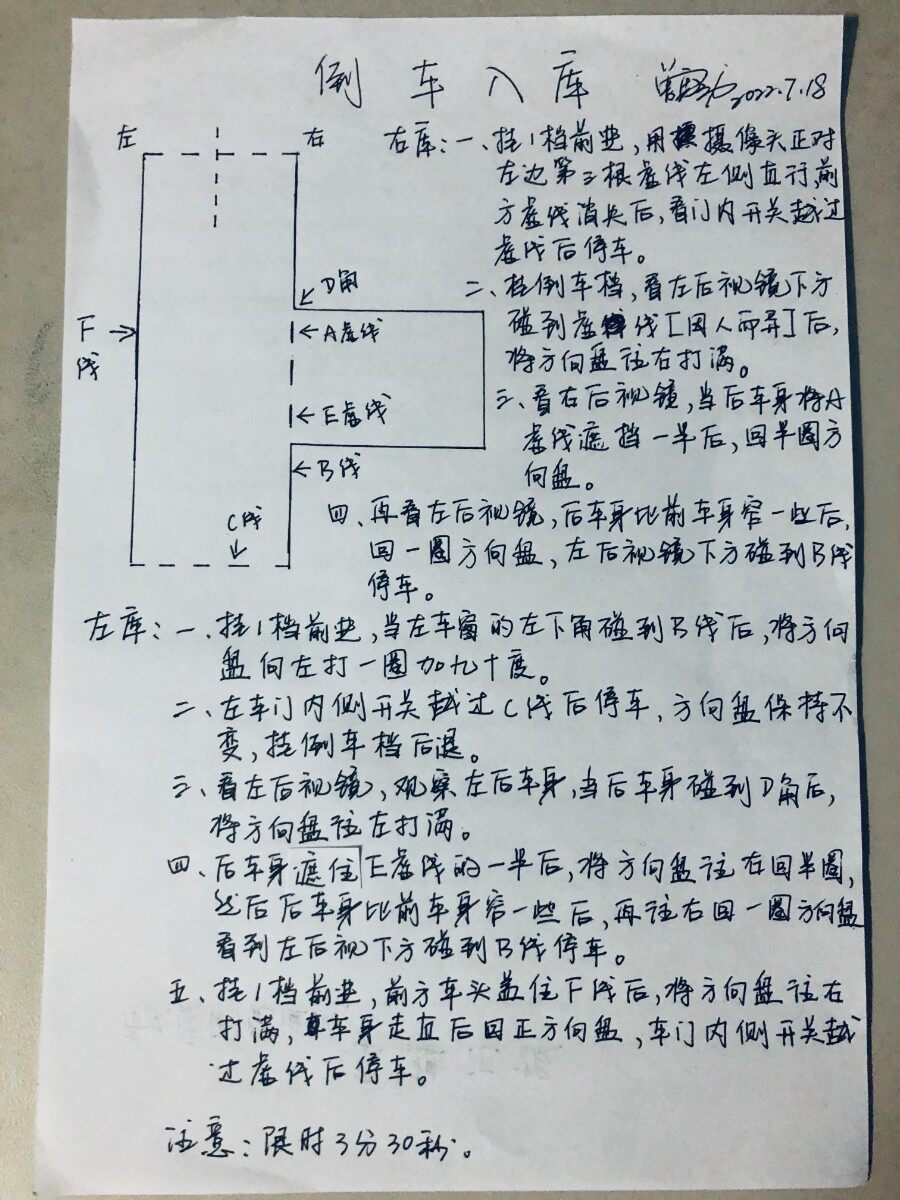 倒车入库 2022.7.18
左 右
右库:一、挂1档前进,用摄像头正对
左边第三根虚线左侧直行,前
方虚线消失后,看门内开关越过
虚线后停车。
D角
二、挂倒车档,看左后视镜下方
碰到虚线[因人而异]后,
将方向盘往右打满。
F线
A虚线
三、看右后视镜,当后车身将A
虚线遮挡一半后,回半圈方
向盘。
E虚线
B线
C线
四、再看左后视镜,后车身比前车身窄一些后,
回一圈方向盘,左后视镜下方碰到B线
停车。
左库:一、挂1档前进,当左车窗的左下角碰到B线后,将方向
盘向左打一圈加九十度。
二、左车门内侧开关越过C线后停车,方向盘保持不
变,挂倒车档后退。
三、看左后视镜,观察左后车身,当后车身碰到D角后,
将方向盘往左打满。
四、后车身遮住E虚线的一半后,将方向盘往右回半圈,
然后后车身比前车身窄一些后,再往右回一圈方向盘
看到左后视下方碰到B线停车。
五、挂1档前进,前方车头盖住F线后,将方向盘往右
打满,车身走直后回正方向盘,车门内侧开关越
过虚线后停车。
注意:限时3分30秒。